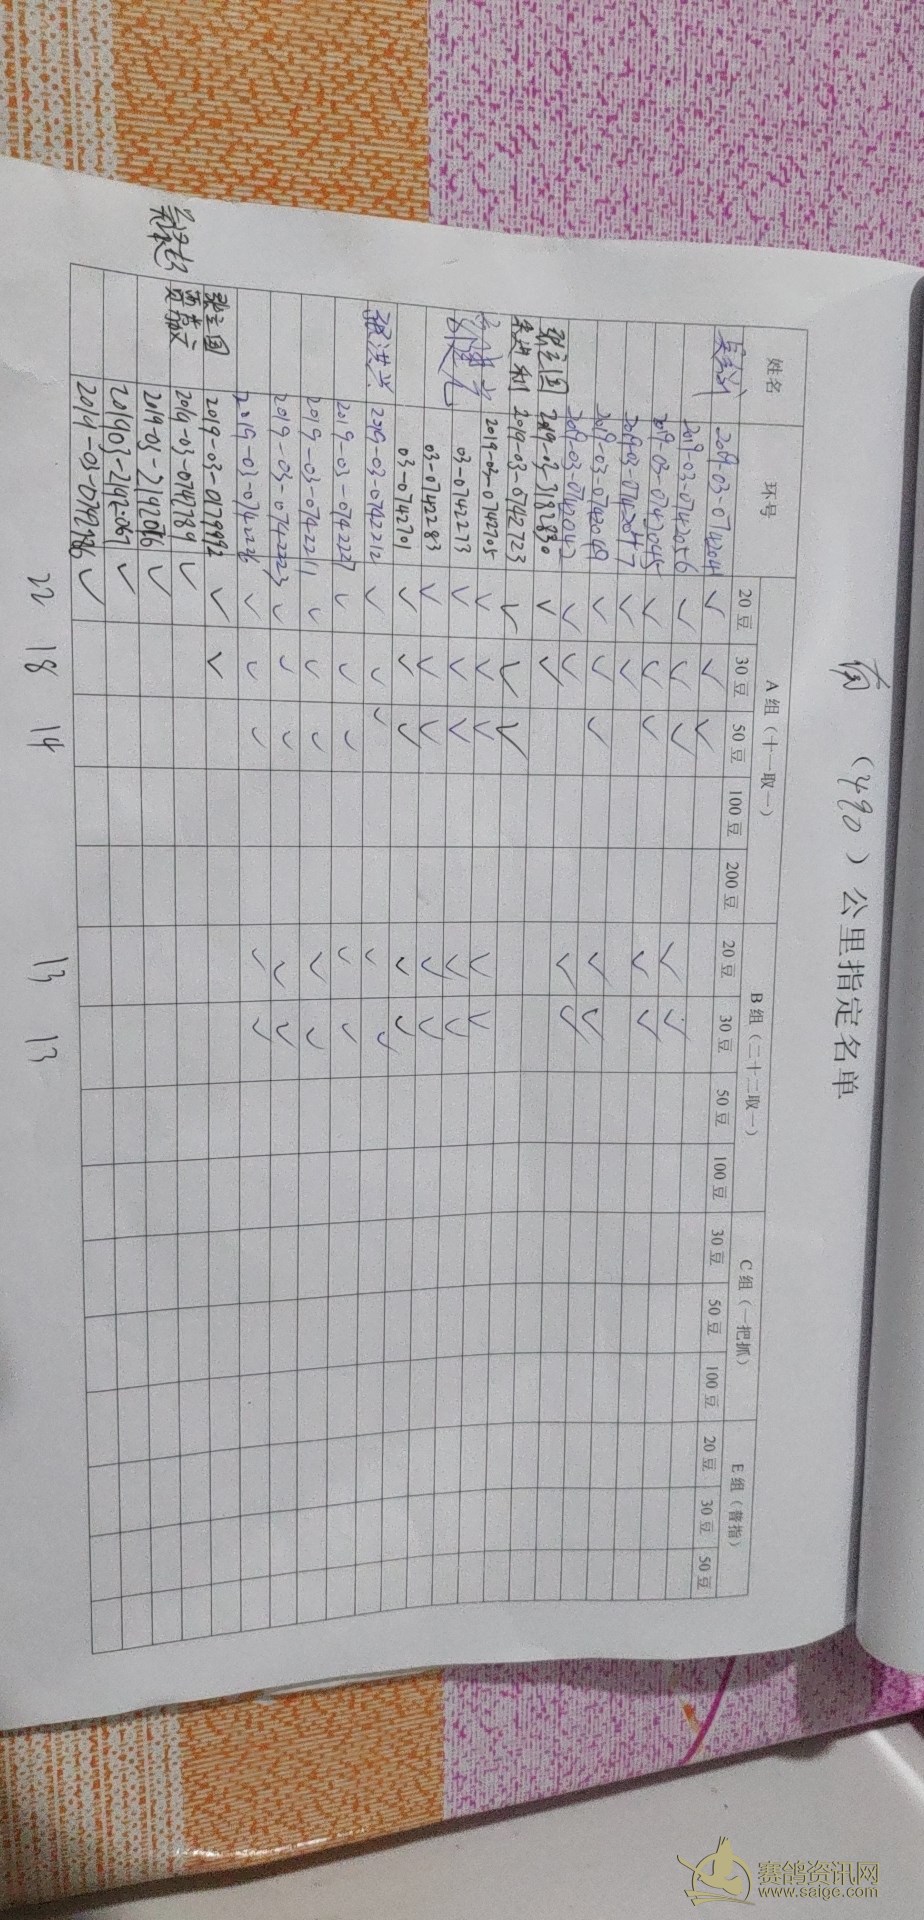 （490）公里指定名单
姓名 环号 A组（十一取一） B组（二十二取一） C组（一把抓） E组（普指）
20豆 30豆 50豆 100豆 200豆 20豆 30豆 50豆 100豆 30豆 50豆 100豆 20豆 30豆 50豆
2019-03-0742041 ✓ ✓ ✓
2019-03-0742056 ✓ ✓ ✓
2019-03-0742045 ✓ ✓ ✓ ✓ ✓
2019-03-0742047 ✓ ✓ ✓ ✓
2019-03-0742049 ✓ ✓ ✓ ✓ ✓
2019-03-0742042 ✓ ✓ ✓ ✓
张立国 2019-03-3182830 ✓ ✓
朱进利 2019-03-0742723 ✓ ✓ ✓
2019-03-0742705 ✓ ✓ ✓ ✓ ✓
03-0742273 ✓ ✓ ✓ ✓ ✓
03-0742283 ✓ ✓ ✓ ✓ ✓
03-0742701 ✓ ✓ ✓ ✓ ✓
张洪兴 2019-03-0742212 ✓ ✓ ✓ ✓ ✓
2019-03-0742227 ✓ ✓ ✓ ✓ ✓
2019-03-0742211 ✓ ✓ ✓ ✓ ✓
2019-03-0742223 ✓ ✓ ✓ ✓ ✓
2019-03-0742226 ✓ ✓ ✓ ✓ ✓
张立国 2019-03-079992 ✓ ✓
2019-03-0747789 ✓
2019-03-2142016 ✓
2019-03-2142067 ✓
✓
22 18 14 13 13
赛鸽资讯网
www.saige.com